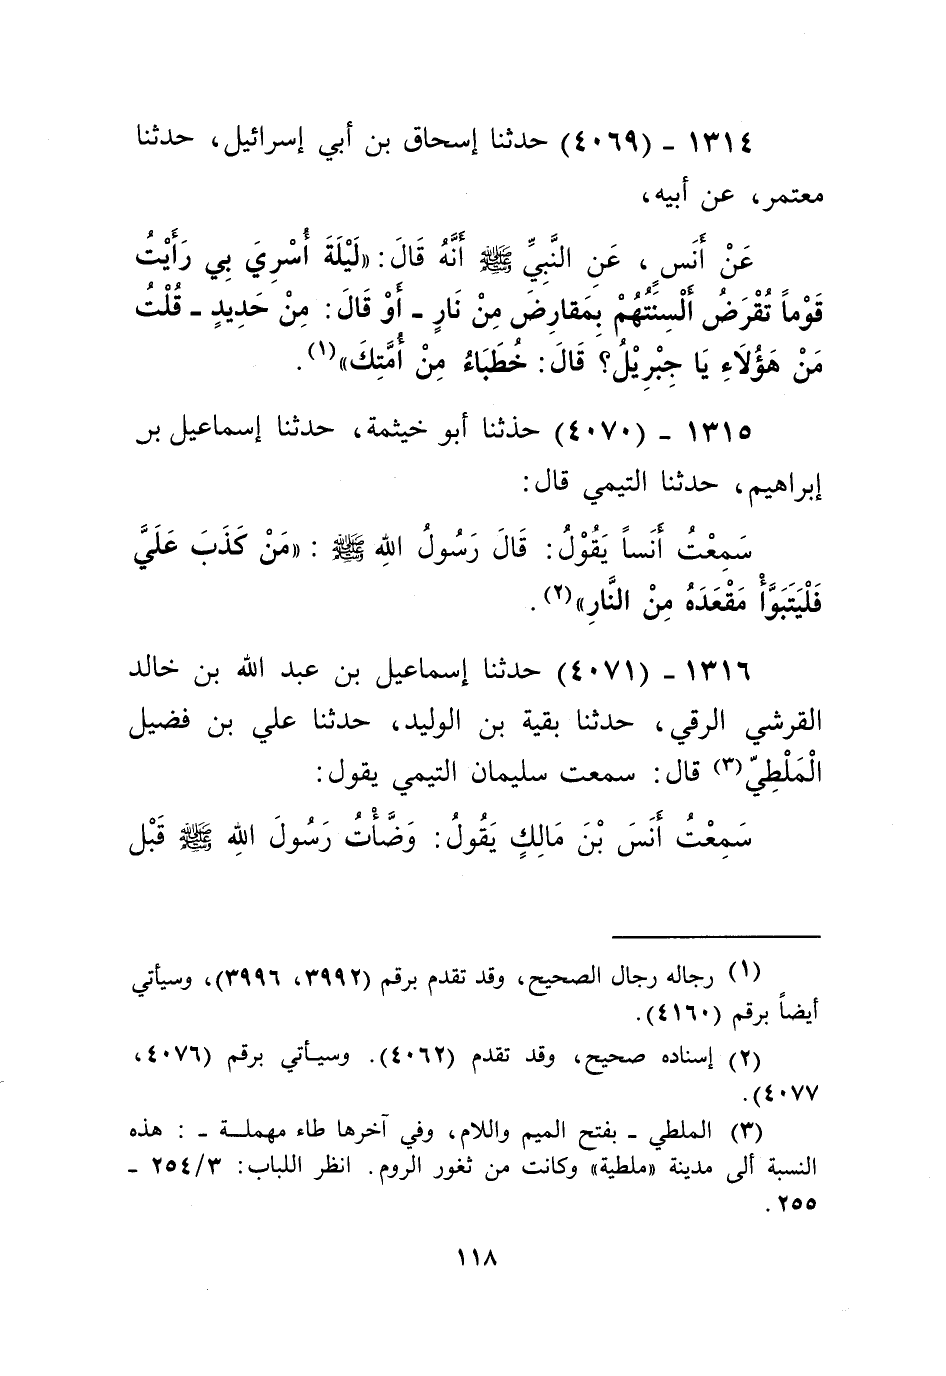 ١٣١٤ ـ (٤٠٦٩) حدثنا إسحاق بن أبي إسرائيل، حدثنا
معتمر، عن أبيه،
عَنْ أَنَسٍ، عَنِ النَّبِيِّ ﷺ أَنَّهُ قَالَ: «لَيْلَةَ أُسْرِيَ بِي رَأَيْتُ
قَوْماً تُقْرَضُ أَلْسِنَتُهُمْ بِمَقارِضَ مِنْ نَارٍ ـ أَوْ قَالَ: مِنْ حَدِيدٍ ـ قُلْتُ
مَنْ هَؤُلَاءِ يَا جِبْرِيْلُ؟ قَالَ: خُطَبَاءُ مِنْ أُمَّتِكَ»(١).
١٣١٥ ـ (٤٠٧٠) حذثنا أبو خيثمة، حدثنا إسماعيل بر
إبراهيم، حدثنا التيمي قال:
سَمِعْتُ أَنَساً يَقُوْلُ: قَالَ رَسُولُ اللهِ ﷺ : «مَنْ كَذَبَ عَلَيَّ
فَلْيَتَبَوَّأْ مَقْعَدَهُ مِنْ النَّارِ»(٢).
١٣١٦ ـ (٤٠٧١) حدثنا إسماعيل بن عبد الله بن خالد
القرشي الرقي، حدثنا بقية بن الوليد، حدثنا علي بن فضيل
الْمَلْطِيّ(٣) قال: سمعت سليمان التيمي يقول:
سَمِعْتُ أَنَسَ بْنَ مَالِكٍ يَقُولُ: وَضَّأْتُ رَسُولَ اللهِ ﷺ قَبْل
(١) رجاله رجال الصحيح، وقد تقدم برقم (٣٩٩٢، ٣٩٩٦)، وسيأتي
أيضاً برقم (٤١٦٠).
(٢) إسناده صحيح، وقد تقدم (٤٠٦٢). وسيأتي برقم (٤٠٧٦،
٤٠٧٧).
(٣) الملطي ـ بفتح الميم واللام، وفي آخرها طاء مهملة ـ : هذه
النسبة ألى مدينة «ملطية» وكانت من ثغور الروم. انظر اللباب: ٢٥٤/٣ ـ
٢٥٥.
١١٨